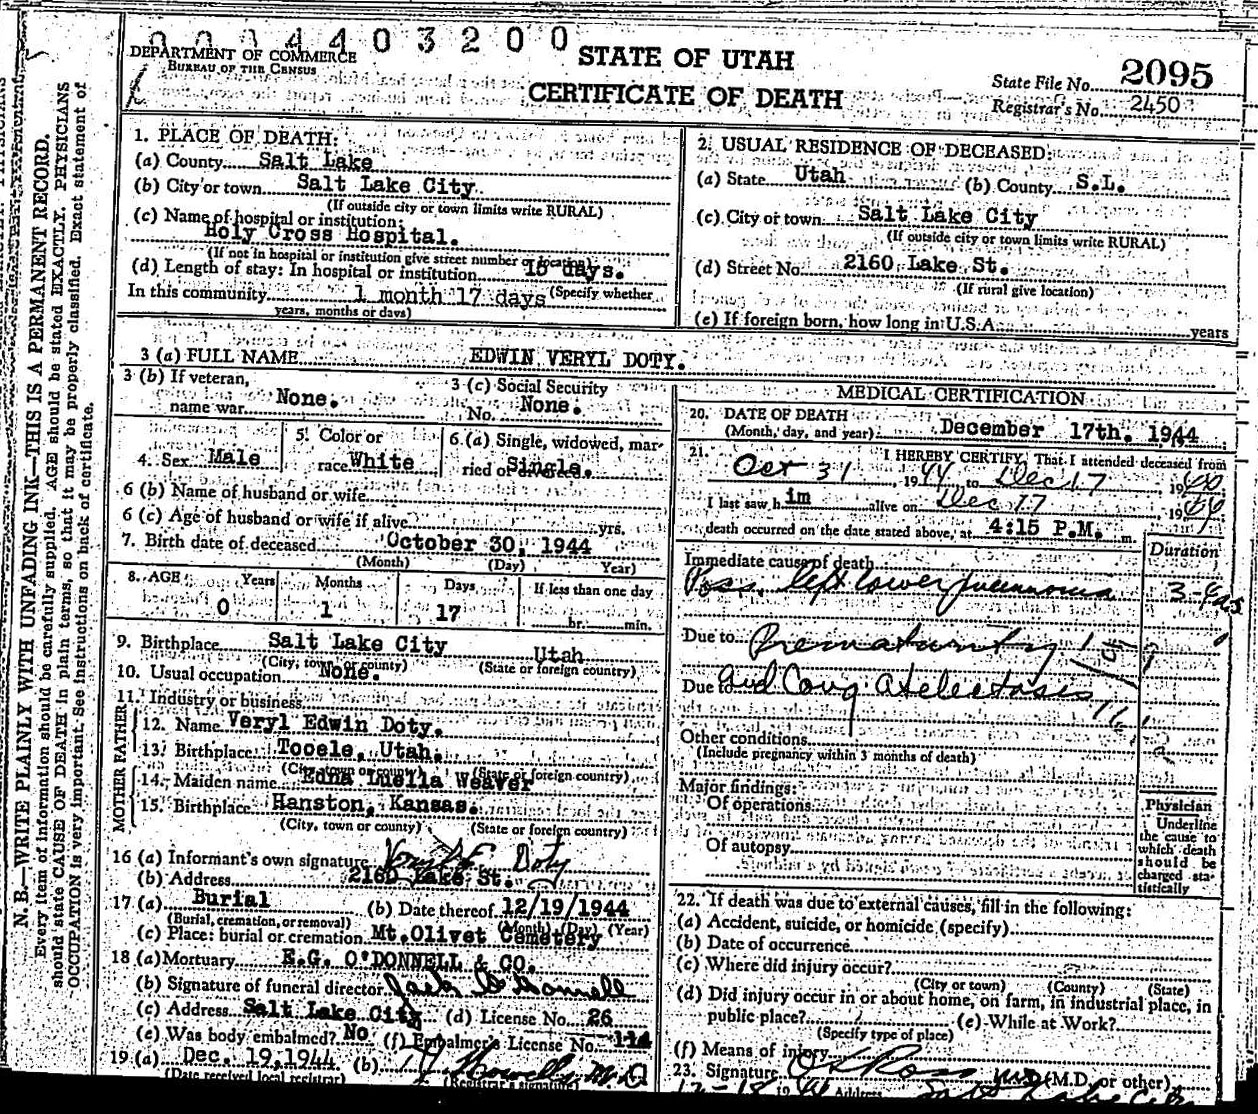 0004403200
DEPARTMENT OF COMMERCE
BUREAU OF THE CENSUS
STATE OF UTAH
CERTIFICATE OF DEATH
State File No. 2095
Registrar's No. 2450
N. B.—WRITE PLAINLY WITH UNFADING INK—THIS IS A PERMANENT RECORD.
Every item of information should be carefully supplied. AGE should be stated EXACTLY. PHYSICIANS
should state CAUSE OF DEATH in plain terms, so that it may be properly classified. Exact statement of
OCCUPATION is very important. See instructions on back of certificate.
1. PLACE OF DEATH:
(a) County Salt Lake
(b) City or town Salt Lake City
(If outside city or town limits write RURAL)
(c) Name of hospital or institution:
Holy Cross Hospital.
(If not in hospital or institution give street number or location)
(d) Length of stay: In hospital or institution 15 days.
In this community 1 month 17 days (Specify whether
years, months or days)
2. USUAL RESIDENCE OF DECEASED:
(a) State Utah (b) County S.L.
(c) City or town Salt Lake City
(If outside city or town limits write RURAL)
(d) Street No. 2160 Lake St.
(If rural give location)
(e) If foreign born, how long in U.S.A. years
3 (a) FULL NAME EDWIN VERYL DOTY.
3 (b) If veteran,
name war None.
3 (c) Social Security
No. None.
4. Sex Male
5. Color or
race White
6. (a) Single, widowed, mar-
ried or divorced Single.
6 (b) Name of husband or wife
6 (c) Age of husband or wife if alive yrs.
7. Birth date of deceased October 30, 1944
(Month) (Day) Year)
8. AGE Years Months Days If less than one day
0 1 17 hr. min.
9. Birthplace Salt Lake City Utah
(City, town or county) (State or foreign country)
10. Usual occupation None.
11. Industry or business
FATHER
12. Name Veryl Edwin Doty.
13. Birthplace Tooele, Utah.
(City, town or county) (State or foreign country)
MOTHER
14. Maiden name Edna Luella Weaver
15. Birthplace Hanston, Kansas.
(City, town or county) (State or foreign country)
16 (a) Informant's own signature Veryl E Doty
(b) Address 2160 Lake St.
17 (a) Burial (b) Date thereof 12/19/1944
(Burial, cremation, or removal) (Month) (Day) (Year)
(c) Place: burial or cremation Mt. Olivet Cemetery
18 (a) Mortuary E.G. O'DONNELL & CO.
(b) Signature of funeral director Jack O'Donnell
(c) Address Salt Lake City (d) License No. 26
(e) Was body embalmed? No (f) Embalmer's License No. 114
19 (a) Dec. 19, 1944 (b) M.D.
(Date received local registrar) (Registrar's signature)
MEDICAL CERTIFICATION
20. DATE OF DEATH
(Month, day, and year): December 17th. 1944
21. I HEREBY CERTIFY, That I attended deceased from
Oct 31, 1944 to Dec 17 1944
I last saw h im alive on Dec 17 1944
death occurred on the date stated above, at 4:15 P.M. m.
Duration
Immediate cause of death
Poss. left lower pneumonia 3-4 ds
Due to Prematurity
Due to and Cong Atelectasis
Other conditions
(Include pregnancy within 3 months of death)
Major findings:
Of operations
Of autopsy
Physician
Underline
the cause to
which death
should be
charged sta-
tistically
22. If death was due to external causes, fill in the following:
(a) Accident, suicide, or homicide (specify)
(b) Date of occurrence
(c) Where did injury occur?
(City or town) (County) (State)
(d) Did injury occur in or about home, on farm, in industrial place, in
public place? (e) While at Work?
(Specify type of place)
(f) Means of injury
23. Signature M.D. (M.D. or other)
12-18 1944 Address